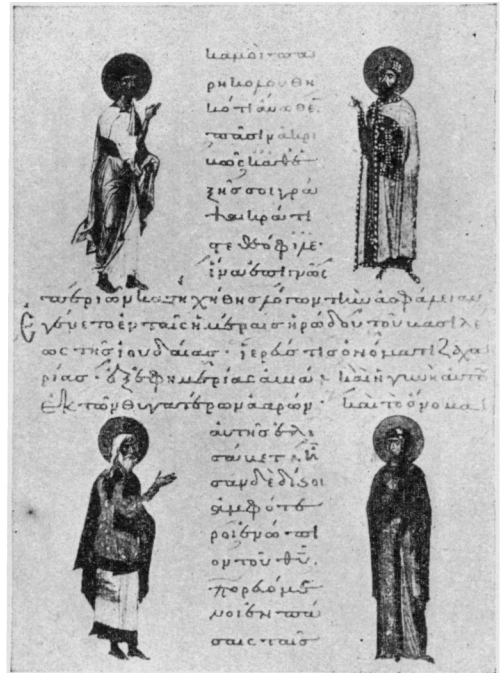 κἀμοὶ πα
ρηκολουθη
κότι ἄνωθε
πᾶσιν ἀκρι
βῶς καθε
ξῆς σοι γρά
ψαι κράτι
στε θεόφιλε·
ἵνα ἐπιγνῷς
περὶ ὧν κατηχήθης λόγων τὴν ἀσφάλειαν
Ἐγένετο ἐν ταῖς ἡμέραις ἡρώδου τοῦ βασιλέ
ως τῆς ἰουδαίας· ἱερεύς τις ὀνόματι ζαχα
ρίας· ἐξ ἐφημερίας ἀβιά· καὶ ἡ γυνὴ αὐτοῦ
ἐκ τῶν θυγατέρων ἀαρών· καὶ τὸ ὄνομα
αὐτῆς ἐλι
σάβετ· ἦ
σαν δὲ δίκαιοι
ἀμφότε
ροι ἐνώπι
ον τοῦ θυ·
πορευόμε
νοι ἐν πά
σαις ταῖς